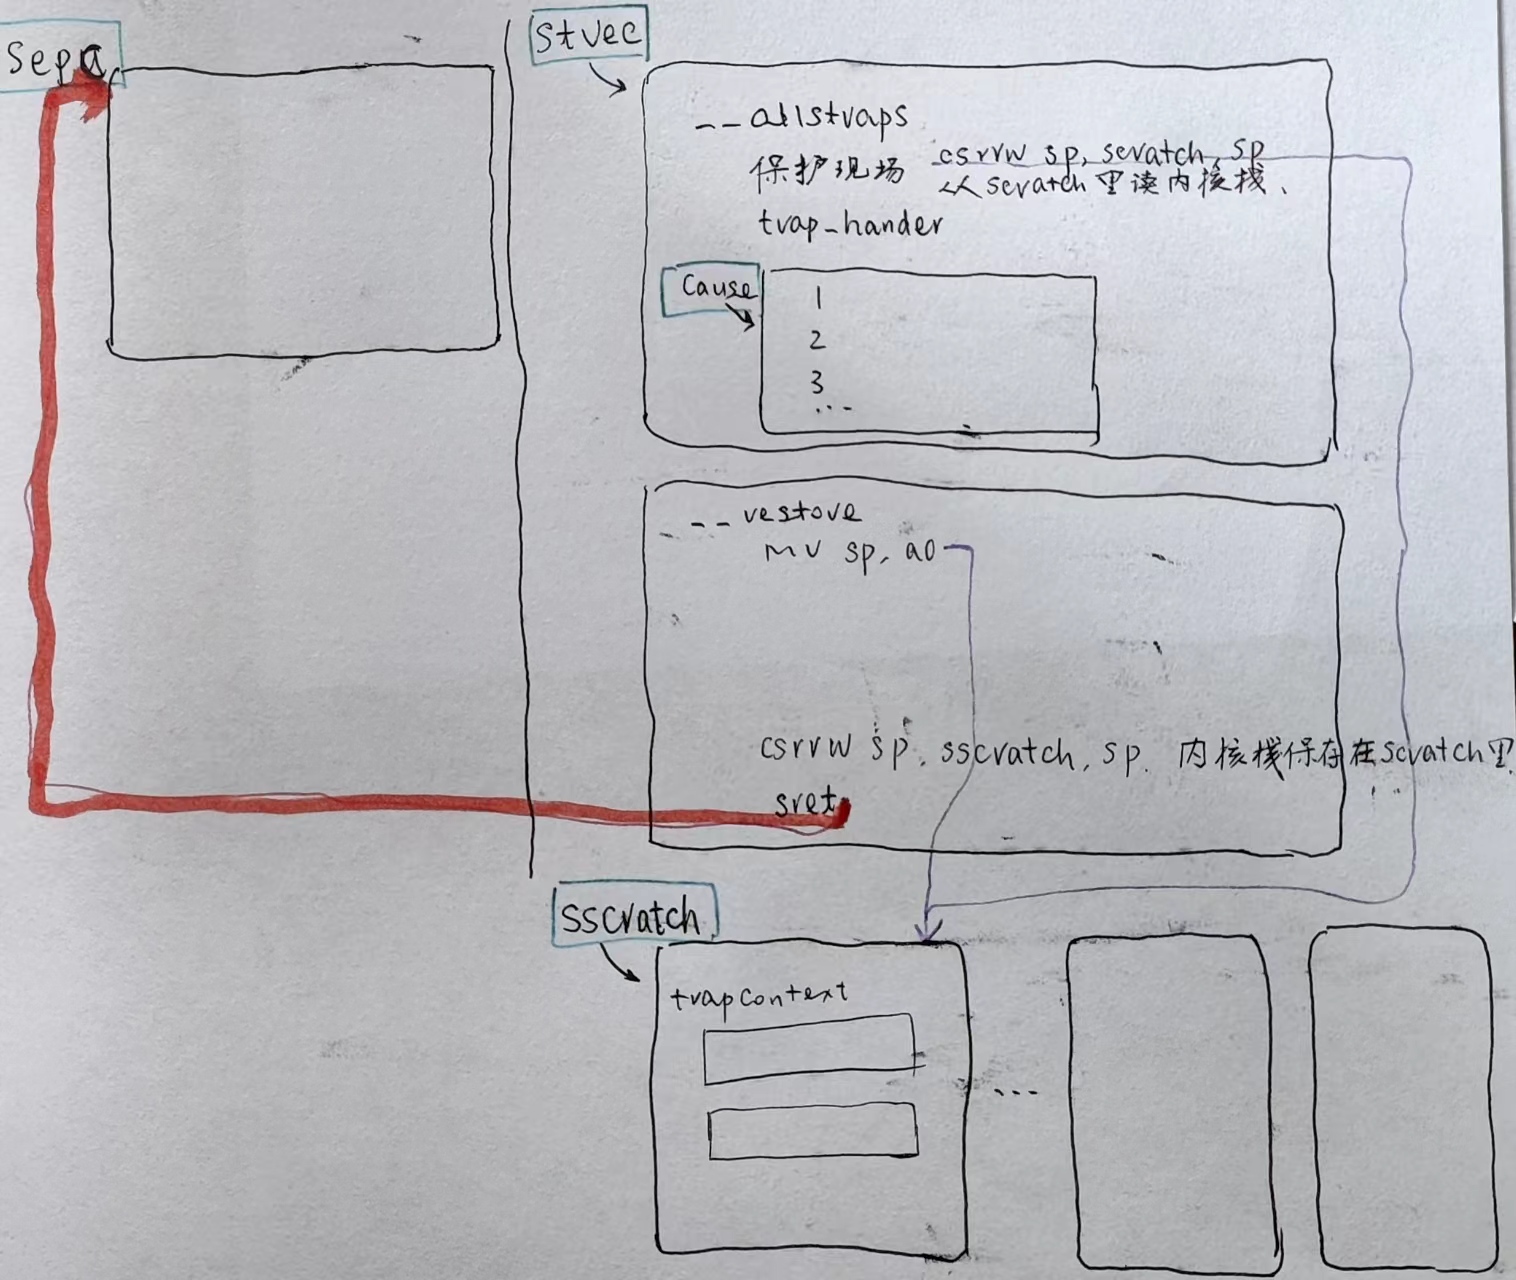 sepc
stvec
__alltraps
保护现场 csrrw sp, scratch, sp
从scratch里读内核栈、
trap_hander
Cause
1
2
3
...
__restore
mv sp, a0
csrrw sp, sscratch, sp. 内核栈保存在scratch里.
sret
sscratch
trapcontext
...